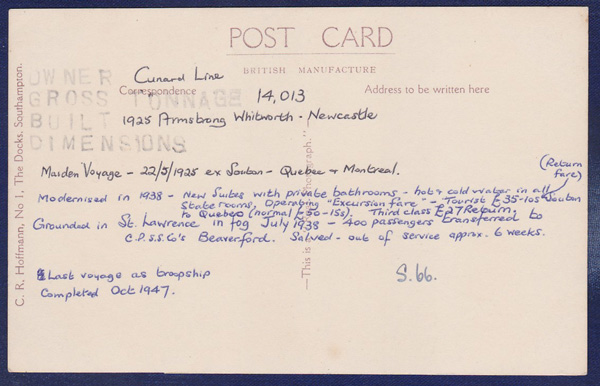 POST CARD
BRITISH MANUFACTURE
Correspondence
Address to be written here
OWNER Cunard Line
GROSS TONNAGE 14,013
BUILT 1925 Armstrong Whitworth - Newcastle
DIMENSIONS
Maiden Voyage - 22/5/1925 ex Soton - Quebec & Montreal.
(Return fare)
Modernised in 1938 - New Suites with private bathrooms - hot & cold water in all
State rooms, Operating "Excursion fare" - Tourist £35-10s Souton
to Quebec (normal £50-15s). Third class £27 Return.
Grounded in St. Lawrence in fog July 1938 - 400 passengers transferred to
C.P.S.S.Co's Beaverford. Salved - out of service approx. 6 weeks.
Last voyage as troopship
Completed Oct 1947.
S.66.
C. R. Hoffmann, No 1, The Docks, Southampton.
—This is photograph."